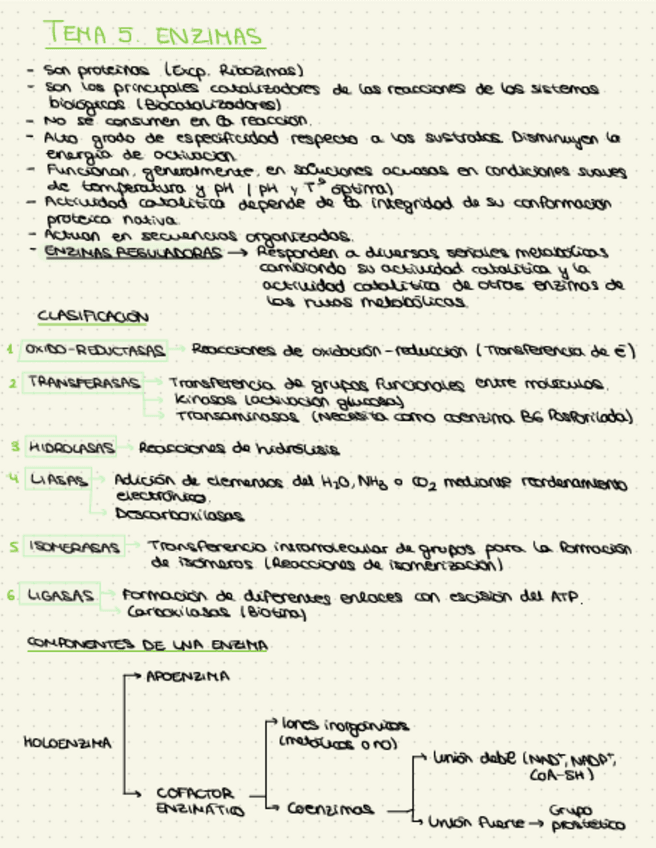 TEMA 5. ENZIMAS
- Son proteínas (Excp. Ribozimas)
- Son los principales catalizadores de las reacciones de los sistemas
biológicos (Biocatalizadores)
- No se consumen en la reacción.
- Alto grado de especificidad respecto a los sustratos. Disminuyen la
energía de activación.
- Funcionan, generalmente, en soluciones acuosas en condiciones suaves
de temperatura y pH (pH y Tª óptima)
- Actividad catalítica depende de la integridad de su conformación
proteica nativa.
- Actúan en secuencias organizadas.
- ENZIMAS REGULADORAS → Responden a diversas señales metabólicas
cambiando su actividad catalítica y la
actividad catalítica de otras enzimas de
las rutas metabólicas.
CLASIFICACIÓN
1 OXIDO-REDUCTASAS → Reacciones de oxidación-reducción (Transferencia de ē)
2 TRANSFERASAS → Transferencia de grupos funcionales entre moléculas.
→ Kinasas (activación glucosa)
→ Transaminasas (Necesita como coenzima B6 fosforilada)
3 HIDROLASAS → Reacciones de hidrólisis
4 LIASAS → Adición de elementos del H₂O, NH₃ o CO₂ mediante reordenamiento
electrónico.
→ Descarboxilasas
5 ISOMERASAS → Transferencia intramolecular de grupos para la formación
de isómeros (Reacciones de isomerización)
6. LIGASAS → Formación de diferentes enlaces con escisión del ATP.
→ Carboxilasas (Biotina)
COMPONENTES DE UNA ENZIMA
→ APOENZIMA
→ Iones inorgánicos
(metálicos o no)
HOLOENZIMA
→ Unión débil (NAD⁺, NADP⁺,
CoA-SH)
→ COFACTOR
ENZIMÁTICO
→ Coenzimas
→ Unión fuerte → Grupo
prostético